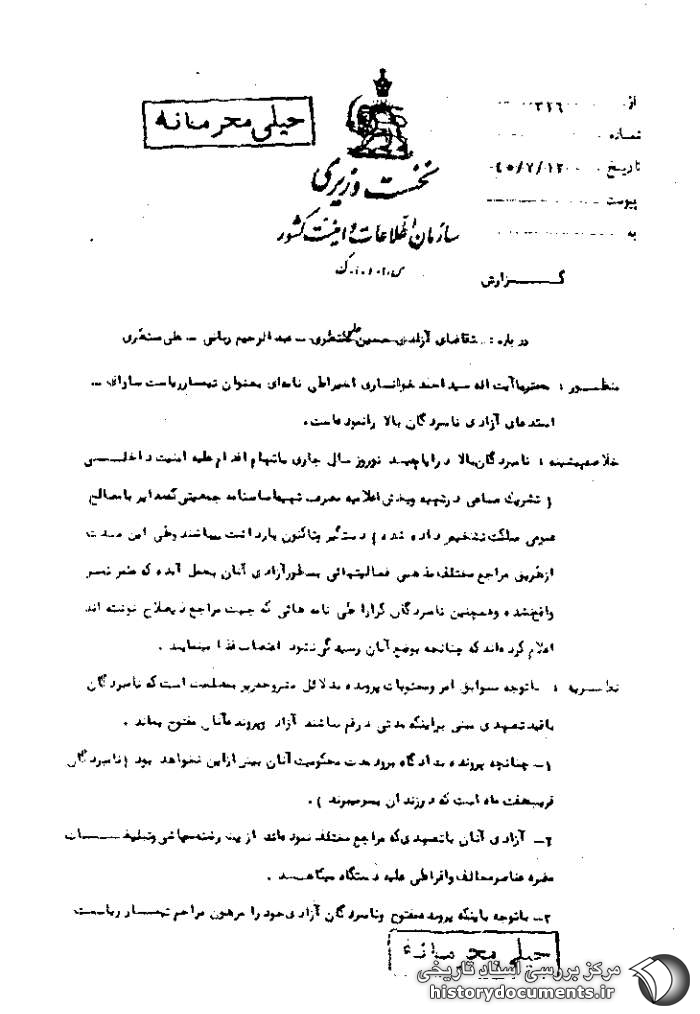 از ۳۱۶
خیلی محرمانه
شماره
نخست وزیری
تاریخ ۴۵/۷/۱۲
پیوست
سازمان اطلاعات و امنیت کشور
به
س.ا.و.ا.ک
گزارش
درباره : تقاضای آزادی حسین علی منتظری - عبدالرحیم ربانی - علی منتظری
منظور : حضرت آیت اله سید احمد خوانساری اخیرا طی نامه‌ای بعنوان تیمسار ریاست ساواک -
استدعای آزادی نامبردگان بالا را نموده است .
خلاصه پیشینه : نامبردگان بالا در ایام عید نوروز سال جاری باتهام اقدام علیه امنیت داخلی
( تشریک مساعی در تهیه و پخش اعلامیه مصرف شهریه اساسنامه جمعیتی که مغایر با مصالح
عمومی مملکت تشخیص داده شده ) دستگیر و تاکنون بازداشت میباشند و طی این مدت
از طریق مراجع مختلف مذهبی فعالیتهائی بمنظور آزادی آنان بعمل آمده که مثمر ثمر
واقع نشده و همچنین نامبردگان کرارا طی نامه هائی که جهت مراجع ذیصلاح نوشته اند
اعلام کرده‌اند که چنانچه بوضع آنان رسیدگی نشود اعتصاب غذا مینمایند .
نظریه : با توجه بسوابق امر و محتویات پرونده بدلائل مشروحه زیر مصلحت است که نامبردگان
با قید تعهدی مبنی بر اینکه مدتی در قم نباشند آزاد و پرونده آنان مفتوح بماند .
۱- چنانچه پرونده بدادگاه برود مدت محکومیت آنان بیش از این نخواهد بود ( نامبردگان
قریب هفت ماه است که در زندان بسر میبرند ) .
۲- آزادی آنان با تعهدی که مراجع مختلف نموده‌اند از یک رشته سمپاشی و تبلیغات
مضره عناصر مخالف و افراطی علیه دستگاه میکاهد .
۳- با توجه باینکه پرونده مفتوح و نامبردگان آزادی خود را مرهون مراحم تیمسار ریاست
خیلی محرمانه
مرکز بررسی اسناد تاریخی
historydocuments.ir